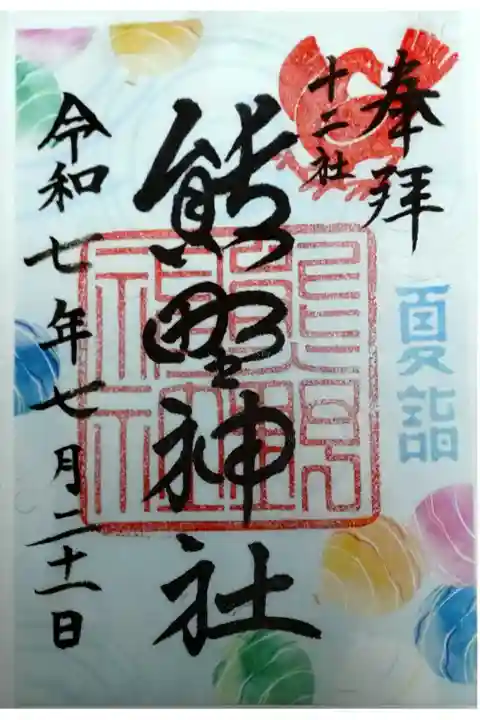 奉拝
夏詣
十二社
熊野神社
令和七年七月二十一日
熊野神社